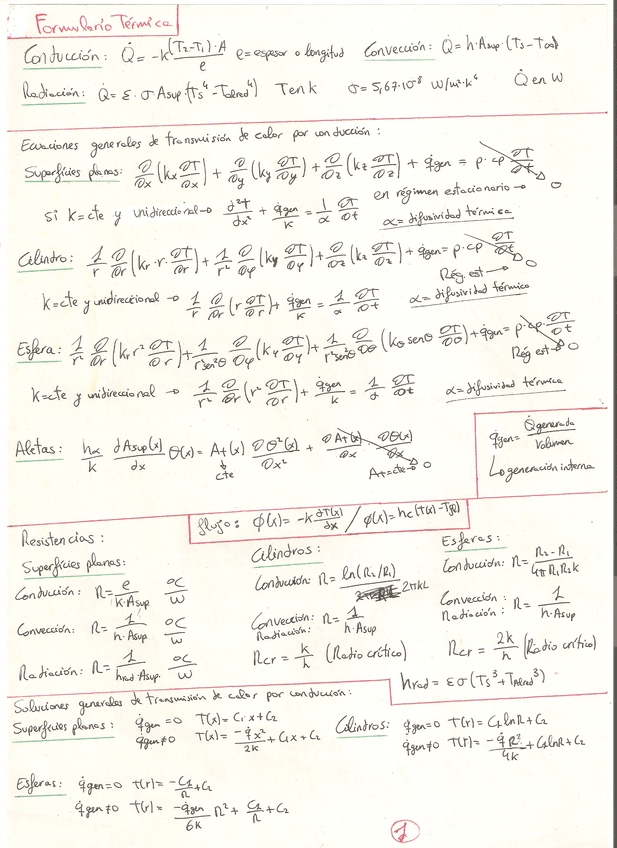 Formulario Térmico
Conducción: Q̇ = -k (T₂-T₁)·A / e   e = espesor o longitud   Convección: Q̇ = h·Asup·(Ts-T∞)
Radiación: Q̇ = ε·σ Asup·(Ts⁴ - Talred⁴)   T en k   σ = 5,67·10⁻⁸ W/m²·k⁴   Q̇ en W
Ecuaciones generales de transmisión de calor por conducción:
Superfícies planas: ∂/∂x (kx ∂T/∂x) + ∂/∂y (ky ∂T/∂y) + ∂/∂z (kz ∂T/∂z) + q̇gen = ρ·cp ∂T/∂t → 0
si k=cte y unidireccional → d²t/dx² + q̇gen/k = 1/α ∂T/∂t   en régimen estacionario →
α = difusividad térmica
Cilindro: 1/r ∂/∂r (kr·r·∂T/∂r) + 1/r² ∂/∂φ (ky ∂T/∂φ) + ∂/∂z (kz ∂T/∂z) + q̇gen = ρ·cp ∂T/∂t → 0
Rég. est →
k=cte y unidireccional → 1/r ∂/∂r (r ∂T/∂r) + q̇gen/k = 1/α ∂T/∂t   α = difusividad térmico
Esfera: 1/r² ∂/∂r (kr r² ∂T/∂r) + 1/r²sen²θ ∂/∂φ (ky ∂T/∂y) + 1/r²senθ ∂/∂θ (kθ senθ ∂T/∂θ) + q̇gen = ρ·cp·∂T/∂t → 0
Rég est →
k=cte y unidireccional → 1/r² ∂/∂r (r² ∂T/∂r) + q̇gen/k = 1/α ∂T/∂t   α = difusividad térmica
Aletas: h∝/k dAsup(x)/dx θ(x) = At(x) ∂θ²(x)/∂x² + ∂At(x)/∂x ∂θ(x)/∂x → 0
cte   At=cte →
q̇gen = Q̇generada / Volumen
↳ generación interna
flujo: φ(x) = -k ∂T(x)/∂x / φ(x) = hc (T(x) - Tfl)
Resistencias:
Superfícies planas:
Conducción: R = e / K·Asup   ºC/W
Convección: R = 1 / h·Asup   ºC/W
Radiación: R = 1 / hrad·Asup   ºC/W
Cilindros:
Conducción: R = ln(R₂/R₁) / 2πkL
Convección: R = 1 / h·Asup
Radiación:
Rcr = k/h (Radio crítico)
Esferas:
Conducción: R = R₂-R₁ / 4πR₁R₂k
Convección: R = 1 / h·Asup
Radiación:
Rcr = 2k/h (Radio crítico)
hrad = εσ(Ts³ + TAlred³)
Soluciones generales de transmisión de calor por conducción:
Superfícies planas: q̇gen = 0   T(x) = C₁x + C₂
q̇gen ≠ 0   T(x) = -q̇x²/2k + C₁x + C₂
Cilindros: q̇gen = 0   T(r) = C₁lnR + C₂
q̇gen ≠ 0   T(r) = -q̇R²/4k + C₁lnR + C₂
Esferas: q̇gen = 0   T(r) = -C₁/R + C₂
q̇gen ≠ 0   T(r) = -q̇gen/6k R² + C₁/R + C₂
1